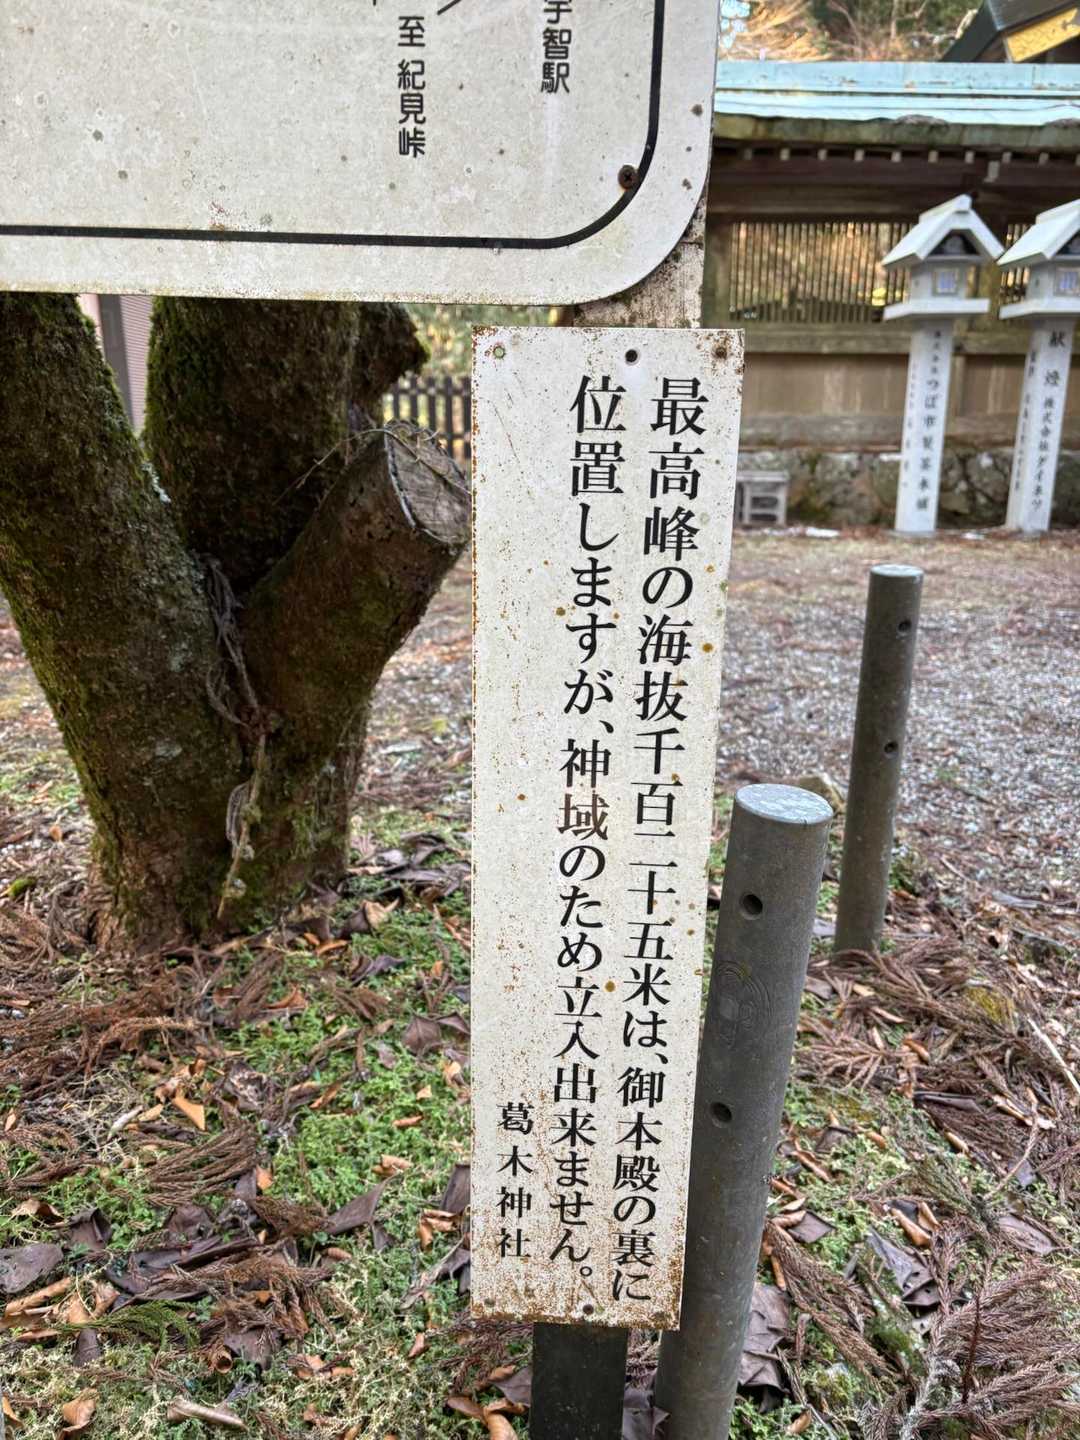 宇智駅
至 紀見峠
最高峰の海抜千百二十五米は、御本殿の裏に
位置しますが、神域のため立入出来ません。
葛木神社
献燈 株式会社ダイネツ
つば市製薬奉賛